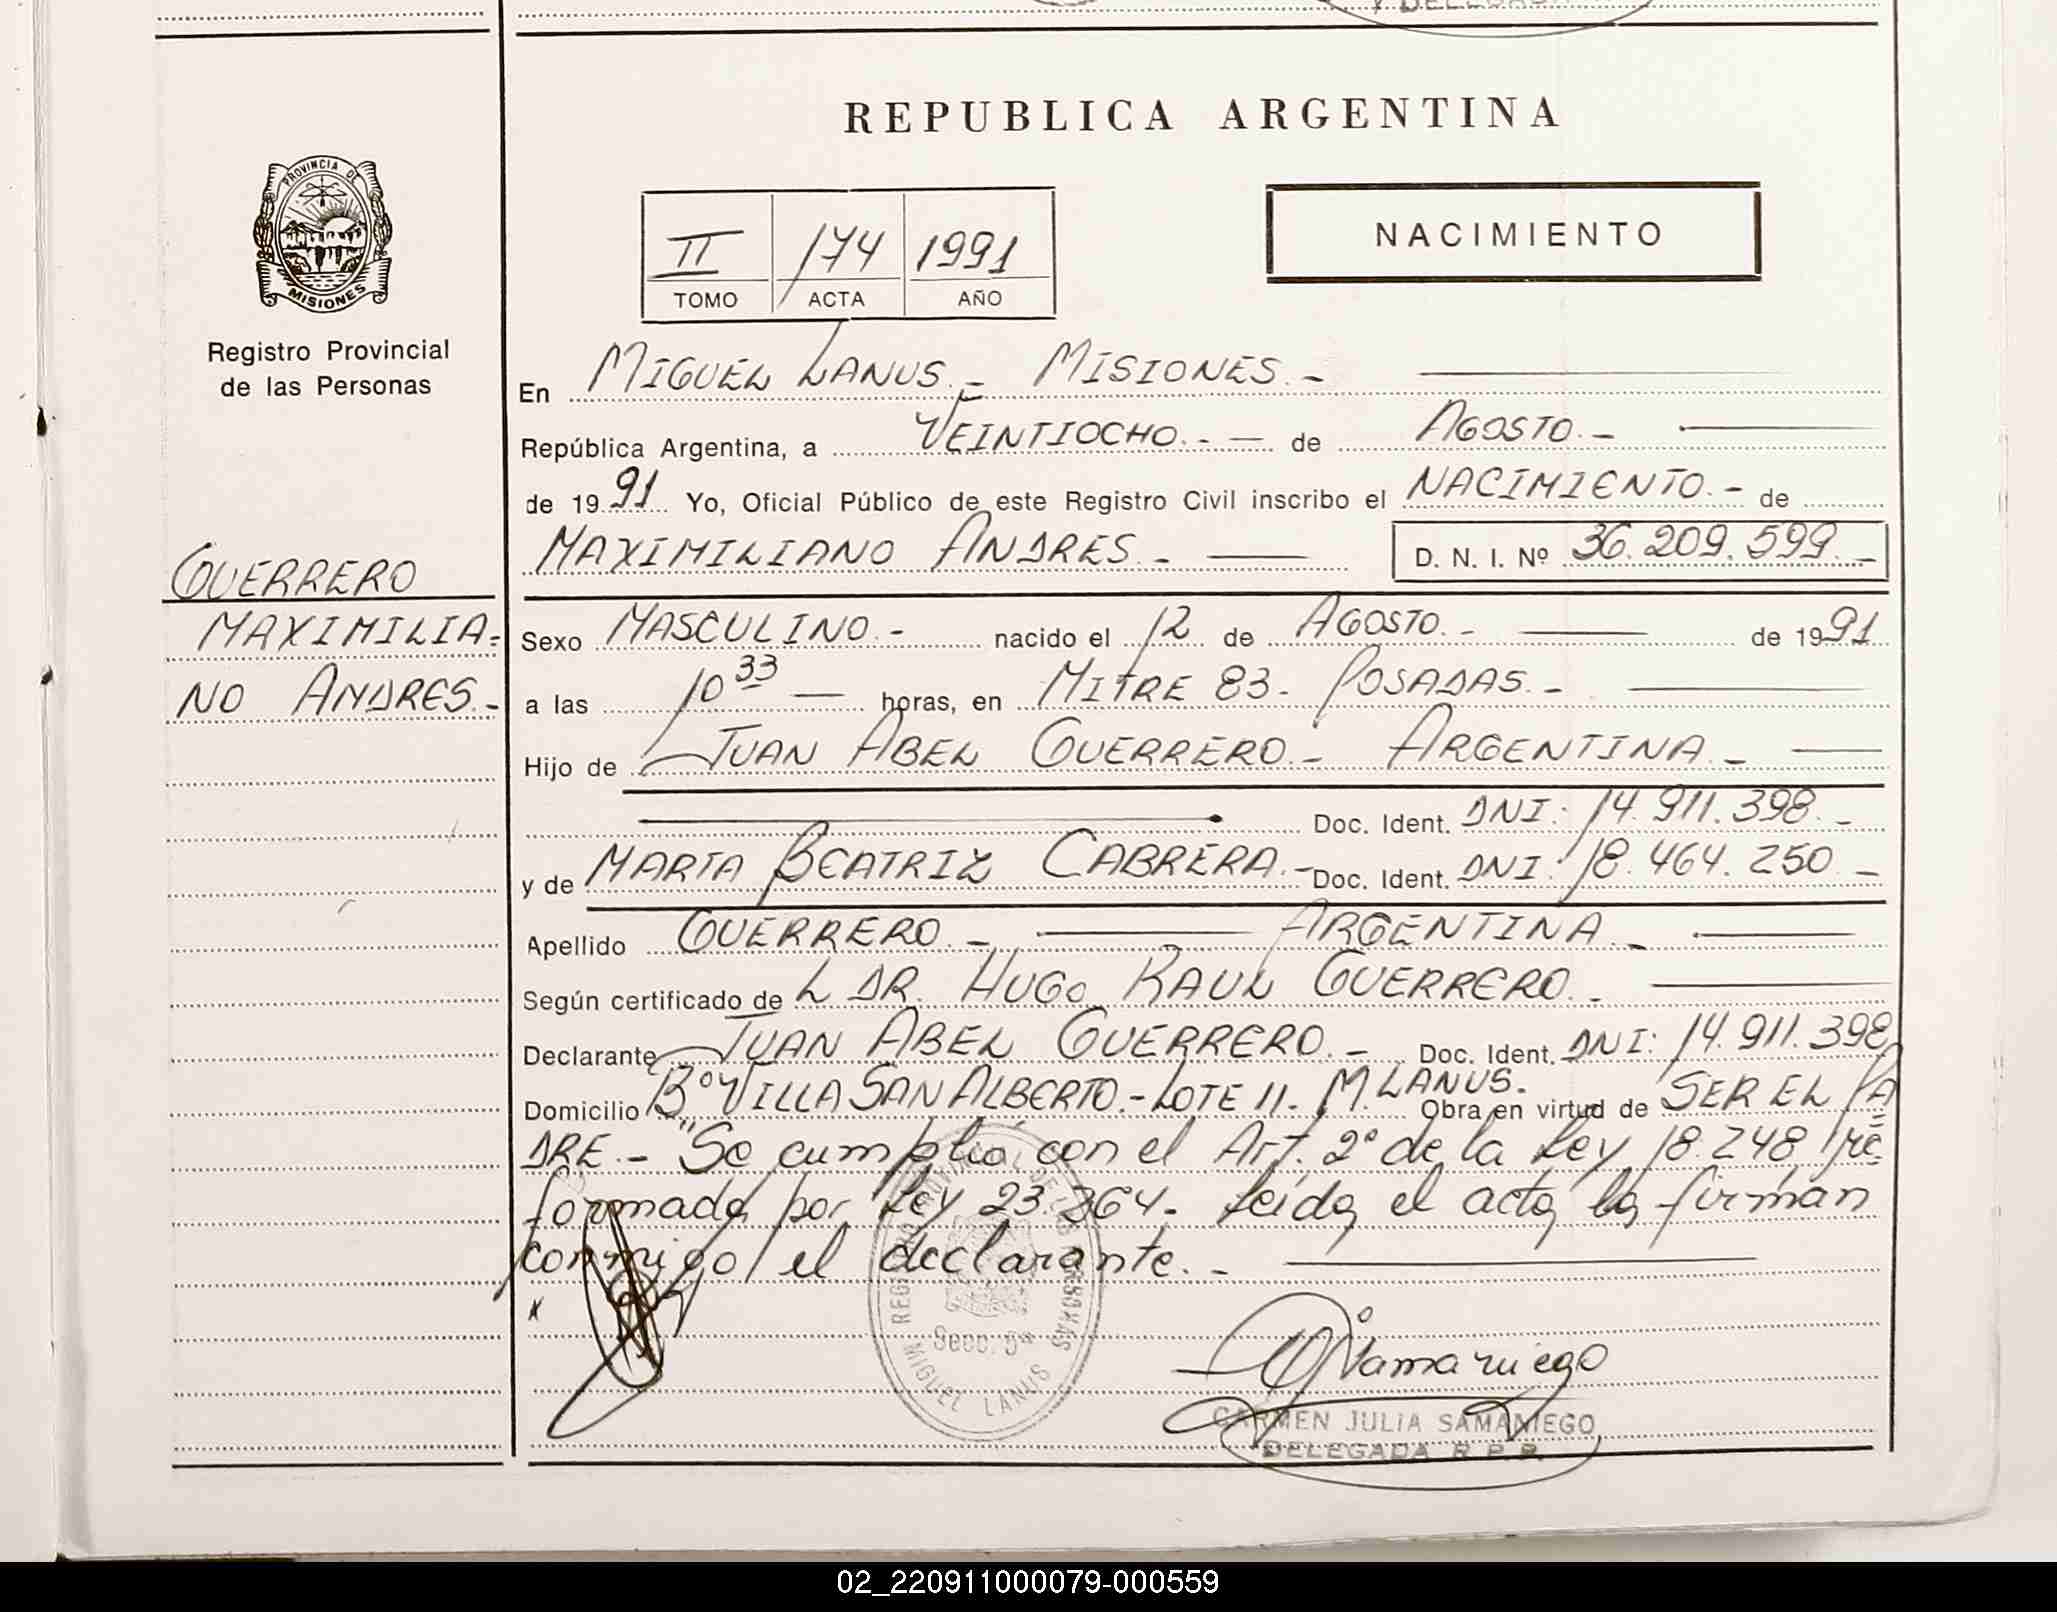 REPUBLICA ARGENTINA
PROVINCIA DE
MISIONES
Registro Provincial
de las Personas
II 174 1991
TOMO ACTA AÑO
NACIMIENTO
En MIGUEL LANUS.- MISIONES.-
República Argentina, a VEINTIOCHO.- de AGOSTO.-
de 1991 Yo, Oficial Público de este Registro Civil inscribo el NACIMIENTO.- de
MAXIMILIANO ANDRES.- D. N. I. Nº 36.209.599.-
GUERRERO
MAXIMILIA=
NO ANDRES.-
Sexo MASCULINO.- nacido el 12 de AGOSTO.- de 1991
a las 10 33 horas, en MITRE 83- POSADAS.-
Hijo de JUAN ABEL GUERRERO.- ARGENTINA.-
Doc. Ident. DNI: 14.911.398.-
y de MARIA BEATRIZ CABRERA.- Doc. Ident. DNI: 18.464.250.-
Apellido GUERRERO.- ARGENTINA.-
Según certificado de L DR. HUGO RAUL GUERRERO.-
Declarante JUAN ABEL GUERRERO.- Doc. Ident. DNI: 14.911.398
Domicilio Bº VILLA SAN ALBERTO.- LOTE 11- M. LANUS. Obra en virtud de SER EL PA
DRE.- "Se cumplió con el Art. 2º de la Ley 18.248 re=
formada por Ley 23.264- Leída el acta la firman
conmigo el declarante.-
REGISTRO PROVINCIAL DE LAS PERSONAS
Secc. 5ª
MIGUEL LANUS
Samaniego
CARMEN JULIA SAMANIEGO
DELEGADA R.P.P.
02_220911000079-000559